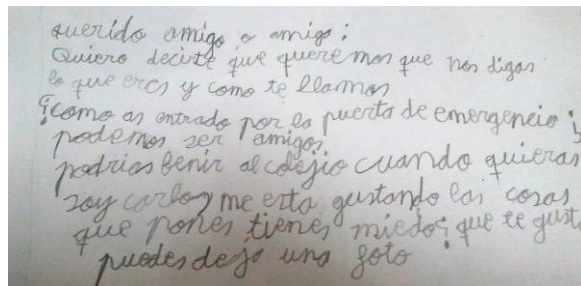 querido amigo o amiga:
Quiero decirte que queremos que nos digas
lo que eres y como te llamas
¿como as entrado por la puerta de emergencia?
podemos ser amigos
podrias benir al colejio cuando quieras
soy carlos me esta gustando las cosas
que pones tienes miedo? que te gusta
puedes dejar una foto